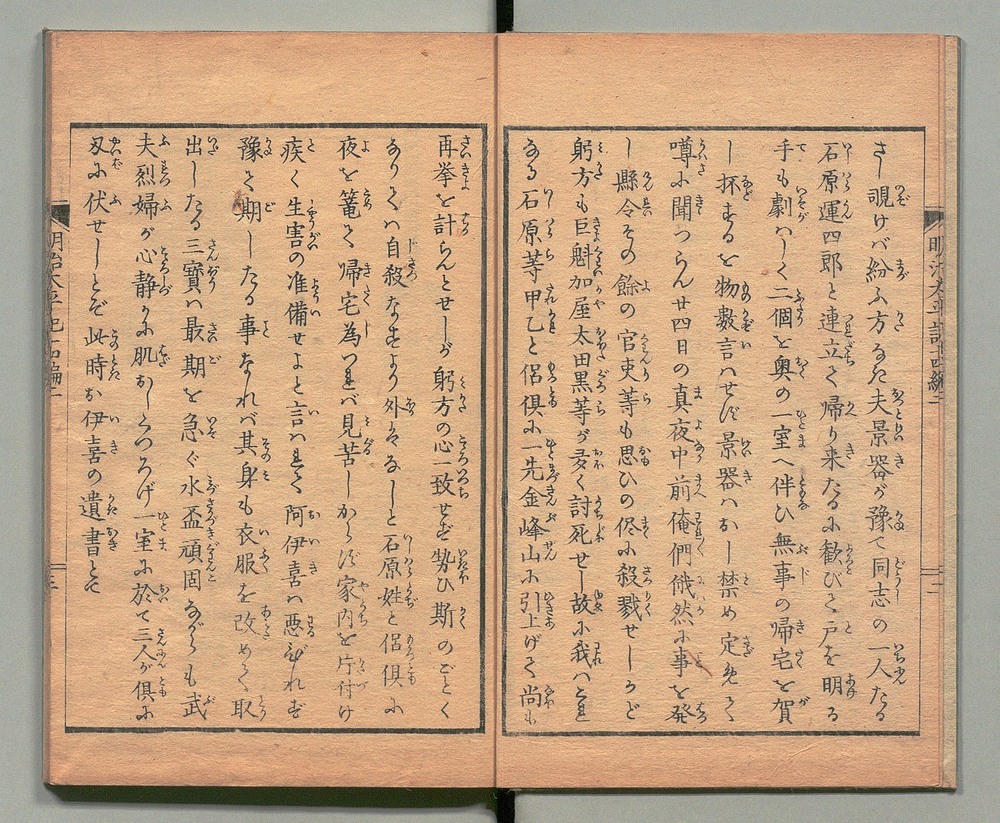 さし覗けバ紛ふ方なき夫景器が豫て同志の一人たる
石原運四郎と連立て帰り来たるに歓びて戸を明る
手も劇ハしく二個を奥の一室へ伴ひ無事の帰宅を賀
し抔するを物数言ハせず景器ハおし禁め定めて
噂に聞つらん廿四日の真夜中前俺們俄然に事を発
し縣令その餘の官吏等も思ひの侭に殺戮せしかど
躬方も巨魁加屋太田黒等が多く討死せし故に我ハこれ
なる石原等甲乙と侶倶に一先金峰山に引上げて尚も
明治太平記十四編二
二
再挙を計らんとせしが躬方の心一致せず勢ひ斯のごとく
なりてハ自殺なすより外なしと石原姓と侶倶に
夜を篭て帰宅為つれバ見苦しからず家内を片付け
疾く生害の准備せよと言ハれて阿伊喜ハ悪びれず
豫て期したる事なれバ其身も衣服を改めて取
出したる三寳ハ最期を急ぐ水盃頑固ながらも武
夫烈婦が心静かに肌おしくつろげ一室に於て三人が倶に
刄に伏せしとぞ此時お伊喜の遺書とて
明治太平記十四編二
三